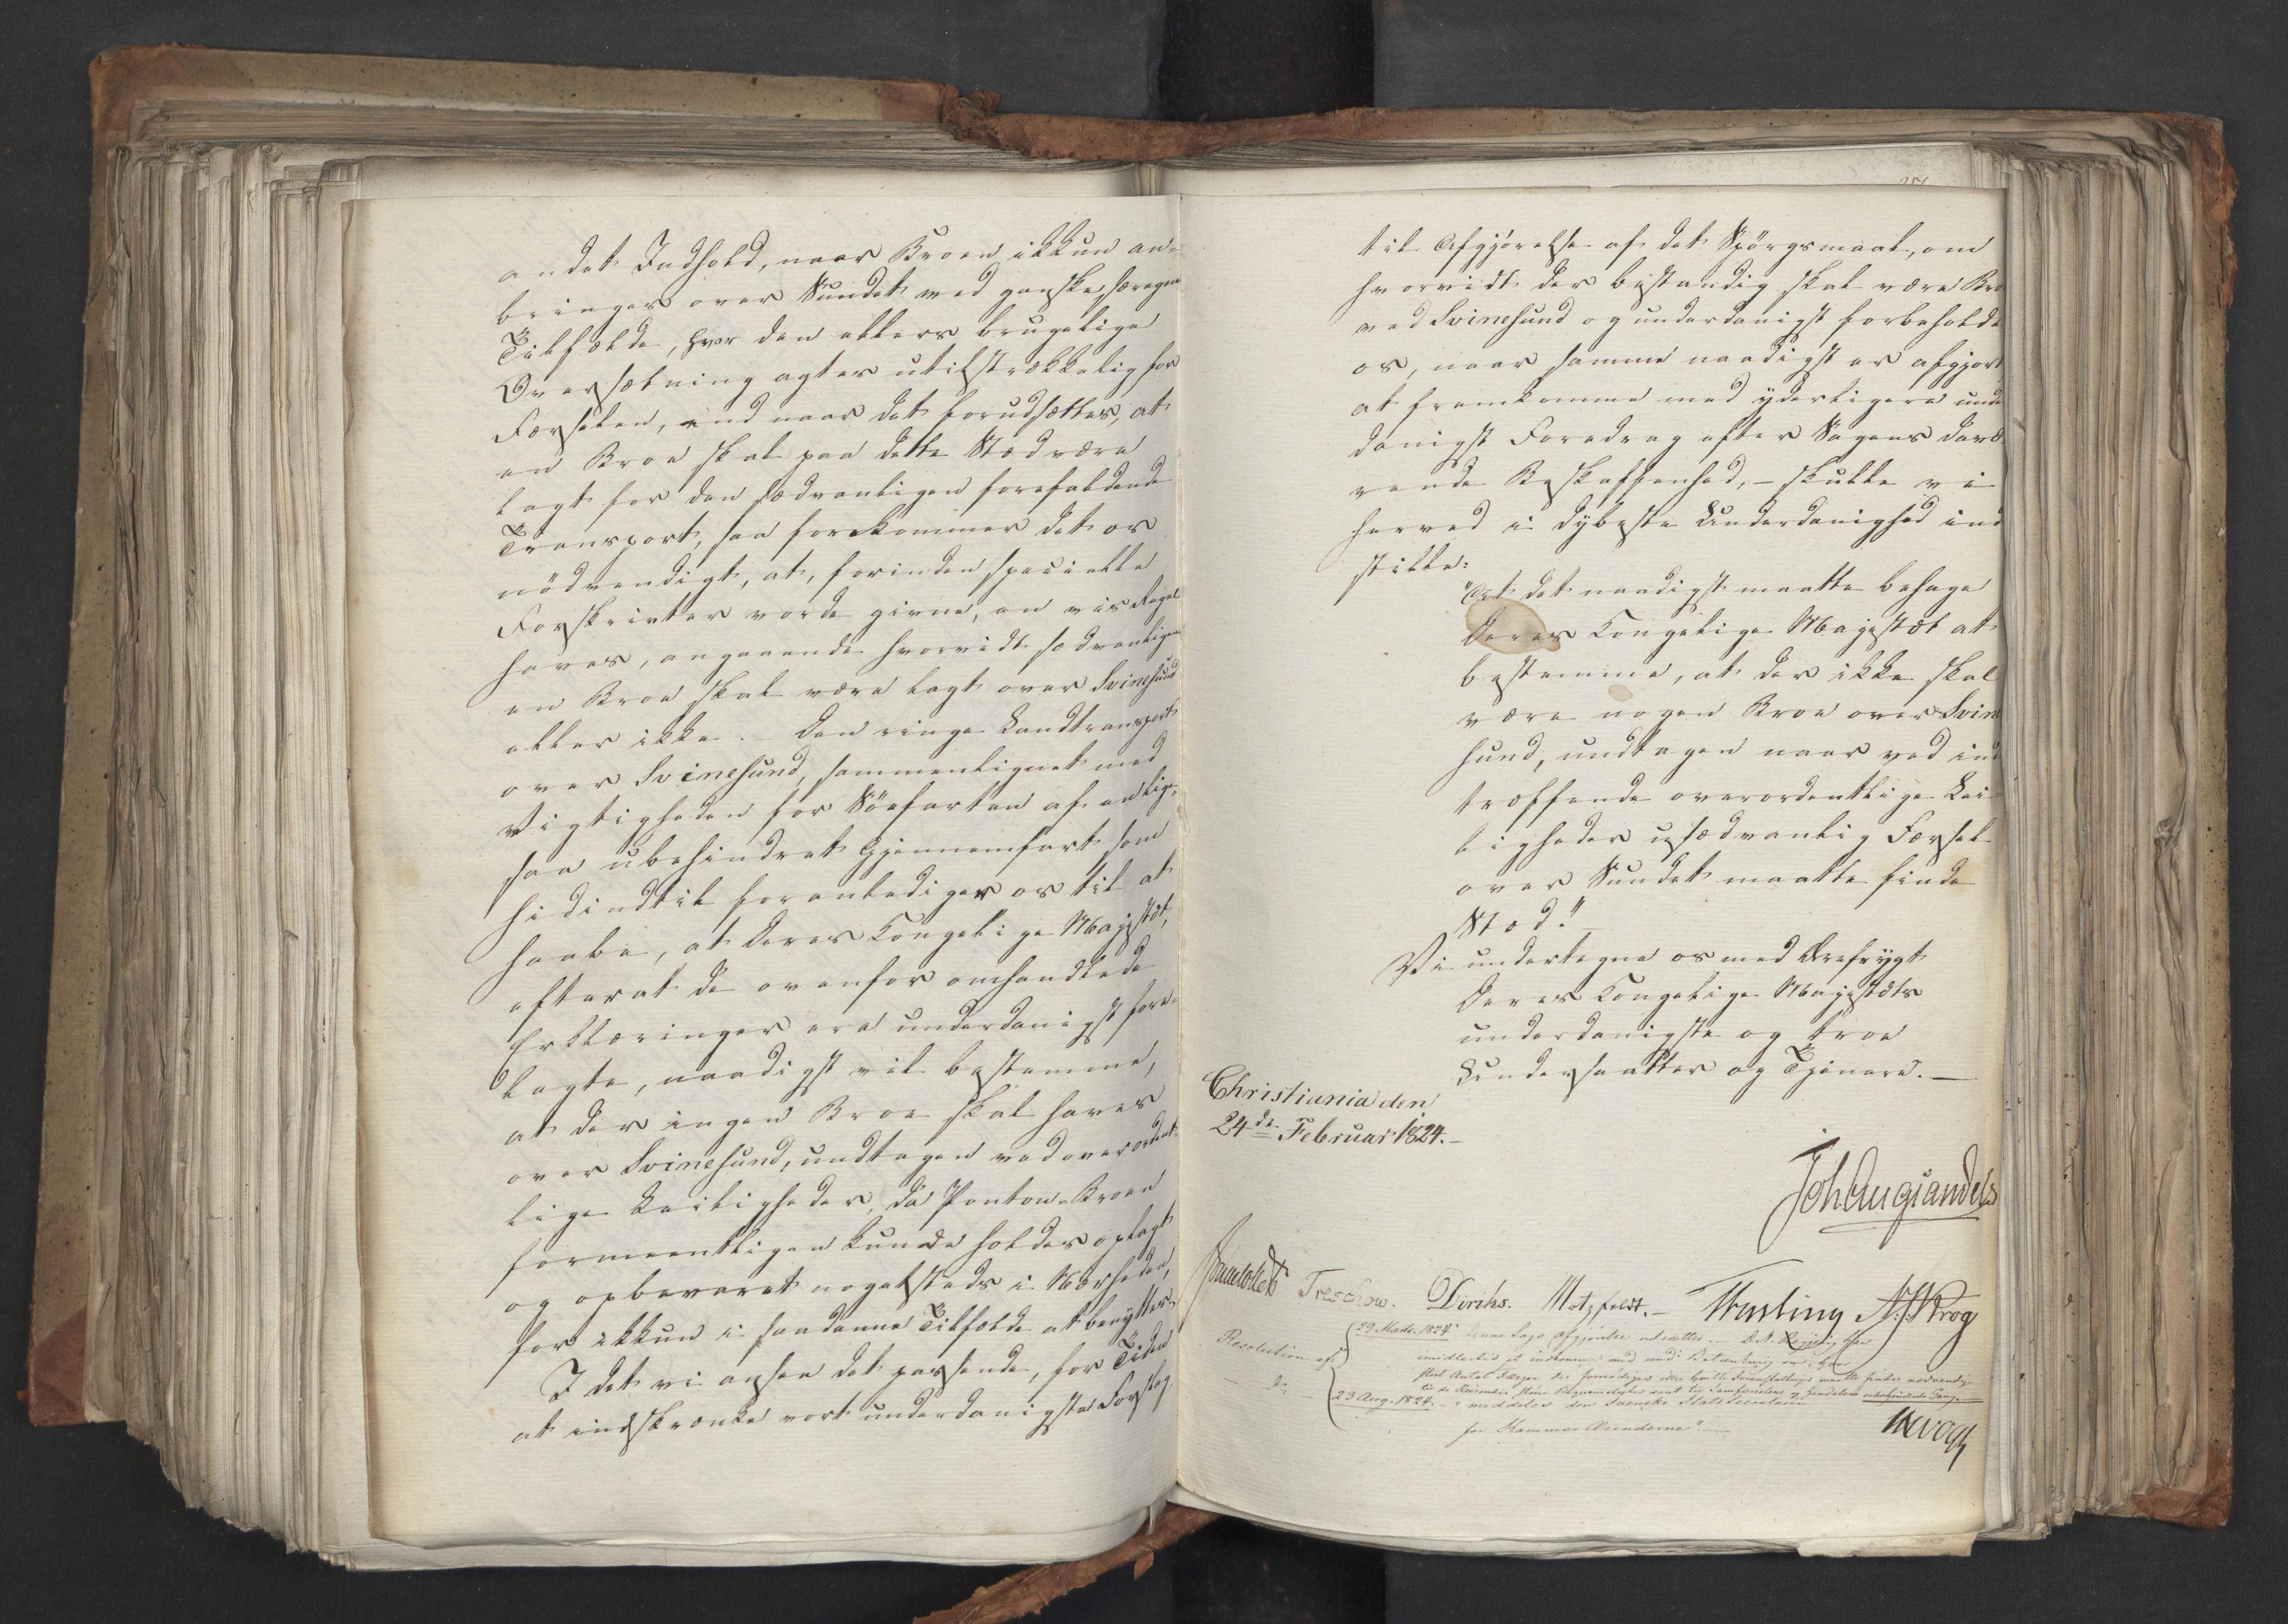 andet Indhold, naar Broen ikkun an-
bringes over Sundet ved ganske særegne
Tilfælde, hvor den ellers brugelige
Oversætning agtes utilstrækkelig for
Færselen, end naar det forudsættes, at
en Broe skal paa dette Sted være
lagt for den sædvanligen forefaldende
Transport, saa forekommer det os
nödvendigt, at, forinden specielle
Forskrivter vorde givne, en vis Regel
haves, angaaende hvorvidt sædvanligen
en Broe skal være lagt over Svinesund
eller ikke. Den ringe Landtransport
over Svinesund, sammenlignet med
Vigtigheden for Söefarten af en lige-
saa ubehindret Gjennemfart som
hidindtil foranlediger os til at
haabe, at Deres Kongelige Majestæt,
efterat de ovenfor omhandlede
Erklæringer ere underdanigst fore-
lagte, naadigst vil bestemme,
at der ingen Broe skal haves
over Svinesund, undtagen ved overordent-
lige Leiligheder, da Ponton-Broen
formeentligen kunde holdes oplagt
og opbevaret nogetsteds i Nærheden,
for ikkun i saadanne Tilfælde at benyttes.
I det vi ansee det passende, for Tiden
at indskrænke vort underdanigste Forslag
til Afgjörelse af det Spörgsmaal, om
hvorvidt der bestandig skal være Bro
ved Svinesund og underdanigst forbeholde
os, naar samme naadigst er afgjort
at fremkomme med yderligere unde
danigst Foredrag efter Sagens dervæ
rende Beskaffenhed, – skulle vi
herved i dybeste Underdanighed ind
stille:
"At det naadigst maatte behage
Deres Kongelige Majestæt at
bestemme, at der ikke skal
være nogen Broe over Svine
sund, undtagen naar ved ind
træffende overordentlige Lei-
ligheder usædvanlig Færsel
over Sundet maatte finde
Sted."
Vi undertegne os med Ærefrygt
Deres Kongelige Majestæts
underdanigste og troe
Undersaatter og Tjenere. –
Christiania den
24de Februar 1824. –
Joh Aug Sandels
Sommerhielm Treschow. Diriks. Motzfeldt. – Fasting N. J. Krog
Resolution af 29 Marts 1824 "denne Sags Afgjörelse udsættes. – D. N. Regjering har
imidlertid at indkomme med und: Betænkning om, hvor
stort Antal Færger der fornödiges eller hvilke Foranstaltninger maatte findes nödvendige
– Do – 23 Aug. 1824. – "meddeles den Svenske Stats Secretair
for Kammer Ærenderne". –
Vogt